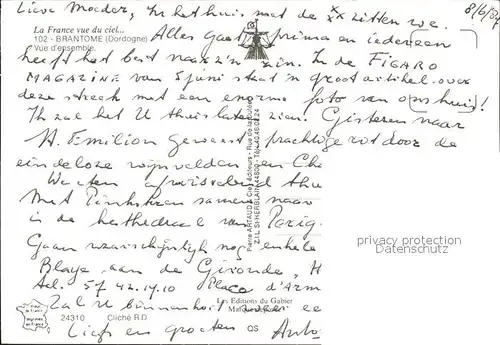 Lieve Moeder, In het huis met de xx zitten we
8/6/
La France vue du ciel...
102 - BRANTOME (Dordogne)
Vue d'ensemble.
Alles gaat prima en iedereen
heeft het best naar z'n zin. In de FIGARO
MAGAZINE van 5 juni staat 'n groot artikel over
deze streek met een enorme foto van ons huis!
Ik zal het U thuis laten zien. Gisteren naar
St. Emilion geweest prachtige rot door de
eindeloze wijnvelden en Cha
We eten afwisselend thu
Met Pinksteren samen naar
in de kathedraal van Perig
Gaan waarschijnlijk nog enkele
Blaye aan de Gironde, H
tel. 57 42.17.10 Place d'Arm
Zal U binnenkort weer ee
Liefs en groeten Anto
Pierre ARTAUD & Cie, Éditeurs - Rue de la
Z.I.L. ST-HERBLAIN 44800 - Tél. 40.46.08.24
Les Editions du Gabier
24310 Cliché R.D
QS
photo by copyright
protection